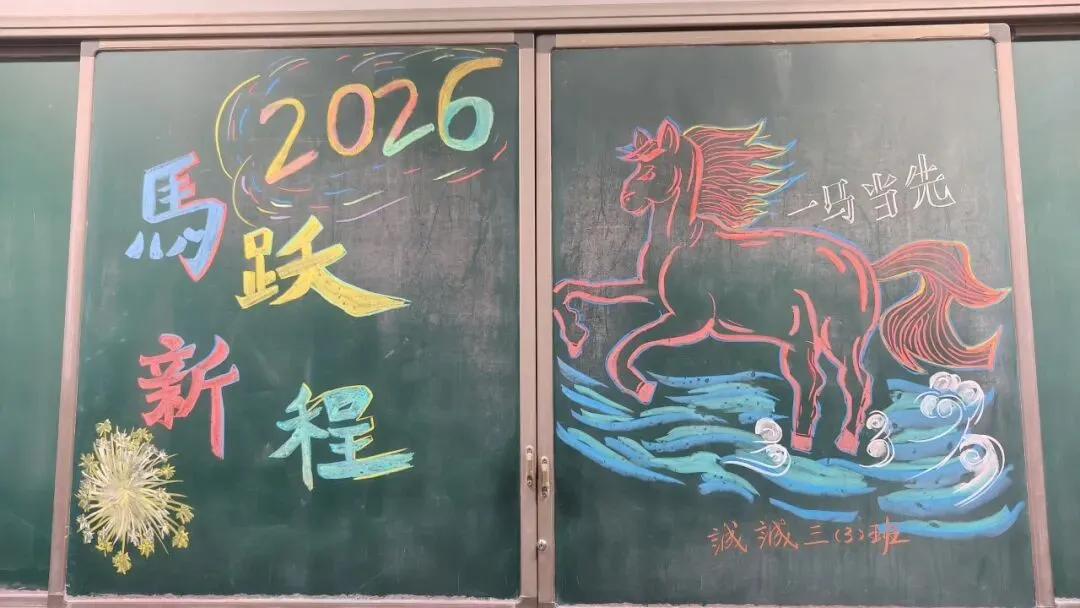 2026
馬跃
新程
一马当先
誠誠三(3)班